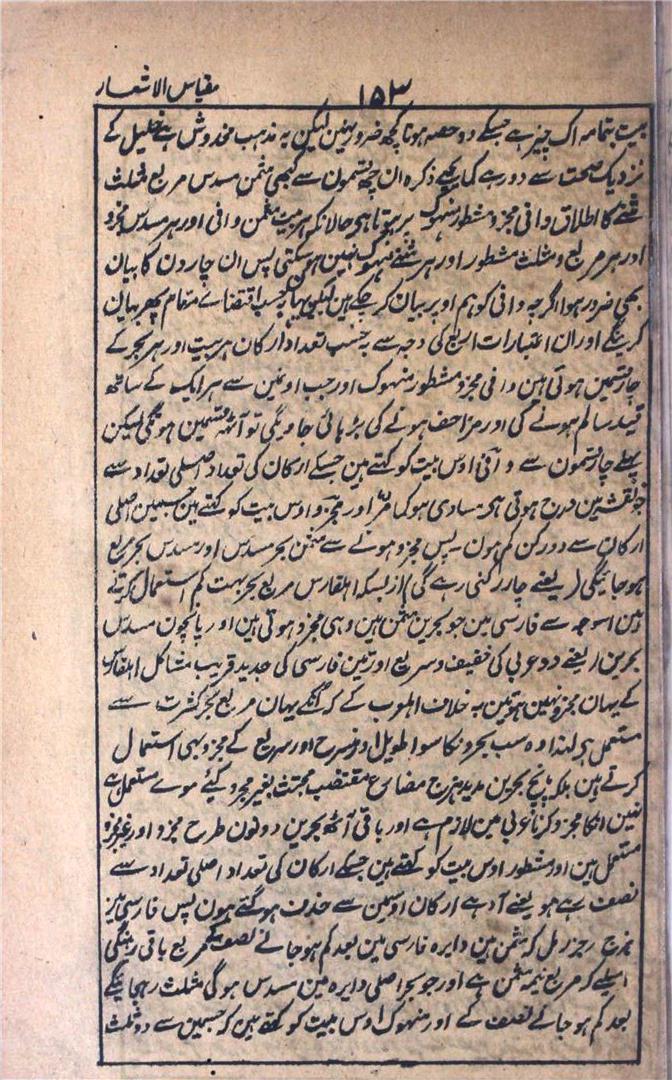 مقیاس الاشعار
۱۵۳
بیت بتمامہ اک چیز ہے جسکے دو حصہ ہونا کچھ ضرور نہین لیکن یہ مذہب مخدوش ہے خلیل کے
نزدیک صحت سے دور ہے کما یجے ذکرہ ان چھ قسمون سے کبھی مثمن مسدس مربع مثلث
مثنے کا اطلاق وافی مجزو مشطور منہوک پر ہوتا ہی حالانکہ ہر بیت مثمن وافی اور ہر مسدس مجزو
اور ہر مربع و مثلث مشطور اور ہر مثنے منہوک نہین ہو سکتی پس ان چارون کا بیان
بھی ضرور ہوا اگرچہ وافی کو ہم اوپر بیان کر چکے ہین لیکن یہان بحسب اقتضاے مقام پھر بیان
کرینگے اور ان اعتبارات اربع کی وجہ سے بحسب تعداد ارکان ہر بیت اور ہر بحر کے
چار قسمین ہوتی ہین وافی مجزو مشطور منہوک اور جب اونمین سے ہر ایک کے ساتھ
قید سالم ہونے کی اور مزاحف ہونے کی بڑہائی جاویگی تو آٹھ قسمین ہونگی لیکن
پہلے چار قسمون سے وافی اوس بیت کو کہتے ہین جسکے ارکان کی تعداد اصلی تعداد سے
جو نقشہ مین درج ہوتی ہی مساوی ہو کما مر اور مجزو اوس بیت کو کہتے ہین جسمین اصلی
ارکان سے دو رکن کم ہون پس مجزو ہونے سے مثمن بحر مسدس اور مسدس بحر مربع
ہو جائیگی (یعنے چار رکنی رہے گی) ازبسکہ اہلفارس مربع بحر بہت کم استعمال کرتے
ہین اسوجہ سے فارسی مین جو بحرین مثمن ہین وہی مجزو ہوتی ہین اور پانچون مسدس
بحرین (یعنے دو عربی کی خفیف و سریع اور تین فارسی کی جدید قریب مشاکل اہلفارس
کے یہان مجزو نہین ہوتین بہ خلاف اہلعرب کے کہ انکے یہان مربع بحر کثرت سے
مستعمل ہی لہذا وہ سب بحرونکا سوا طویل اور منسرح اور سریع کے مجزو بھی استعمال
کرتے ہین بلکہ پانچ بحرین مدید ہزج مضارع مقتضب مجتث بغیر مجزو کیئے ہوے مستعمل ہے
نہین انکا مجزو کرنا عربی مین لازم ہے اور باقی آٹھ بحرین دونون طرح مجزو اور غیر مجزو
مستعمل ہین اور مشطور اوس بیت کو کہتے ہین جسکے ارکان کی تعداد اصلی تعداد سے
نصف رہے ہو یعنے آدہے ارکان اوسمین سے حذف ہو گئے ہون پس فارسی مین
ہزج رجز رمل کہ مثمن ہین دایرہ فارسی مین بعد کم ہو جانے نصف کے مربع باقی رہینگی
اسلیے کہ مربع نیمہ مثمن ہے اور جو بحر اصلی دایرہ مین مسدس ہو گی مثلث رہجائیگے
بعد کم ہو جانے نصف کے اور منہوک اوس بیت کو کہتے ہین کہ جسمین سے دو ثلث